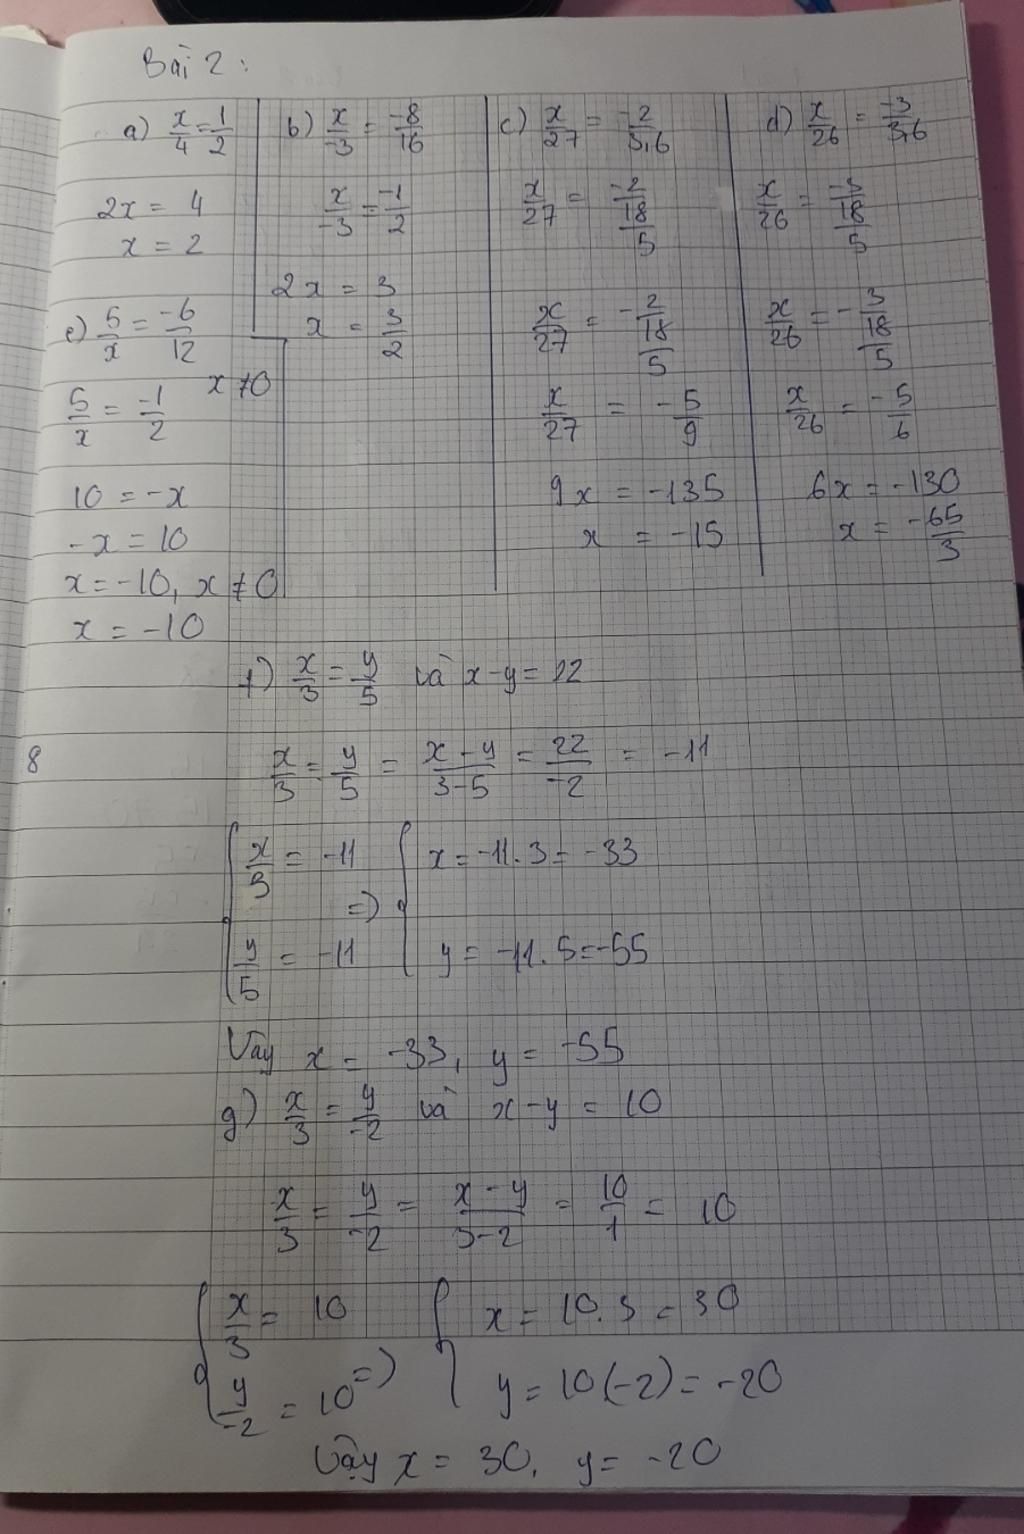 Bài 2:
a) x/4 = 1/2
2x = 4
x = 2
b) x/-3 = -8/16
x/-3 = -1/2
2x = 3
x = 3/2
c) x/27 = -2/3,6
x/27 = -2/(18/5)
x/27 = -2/(18/5)
x/27 = -5/9
9x = -135
x = -15
d) x/26 = -3/3,6
x/26 = -3/(18/5)
x/26 = -3/(18/5)
x/26 = -5/6
6x = -130
x = -65/3
e) 5/x = -6/12
x ≠ 0
5/x = -1/2
10 = -x
-x = 10
x = -10, x ≠ 0
x = -10
f) x/3 = y/5 và x-y = 22
8
x/3 = y/5 = (x-y)/(3-5) = 22/-2 = -11
{ x/3 = -11 => { x = -11.3 = -33
y/5 = -11 y = -11.5 = -55
Vậy x = -33, y = -55
g) x/3 = y/-2 và x-y = 10
x/3 = y/-2 = (x-y)/(3-2) = 10/1 = 10
{ x/3 = 10 => { x = 10.3 = 30
y/-2 = 10 y = 10(-2) = -20
Vậy x = 30, y = -20